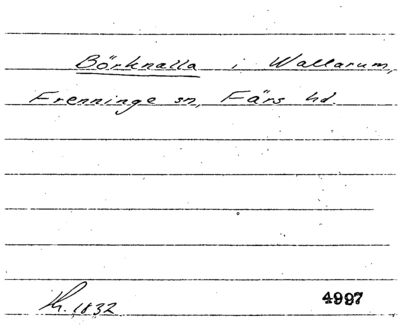 Börknalla i Wallarum,
Frenninge sn, Färs hd.
Th. 1832
4997